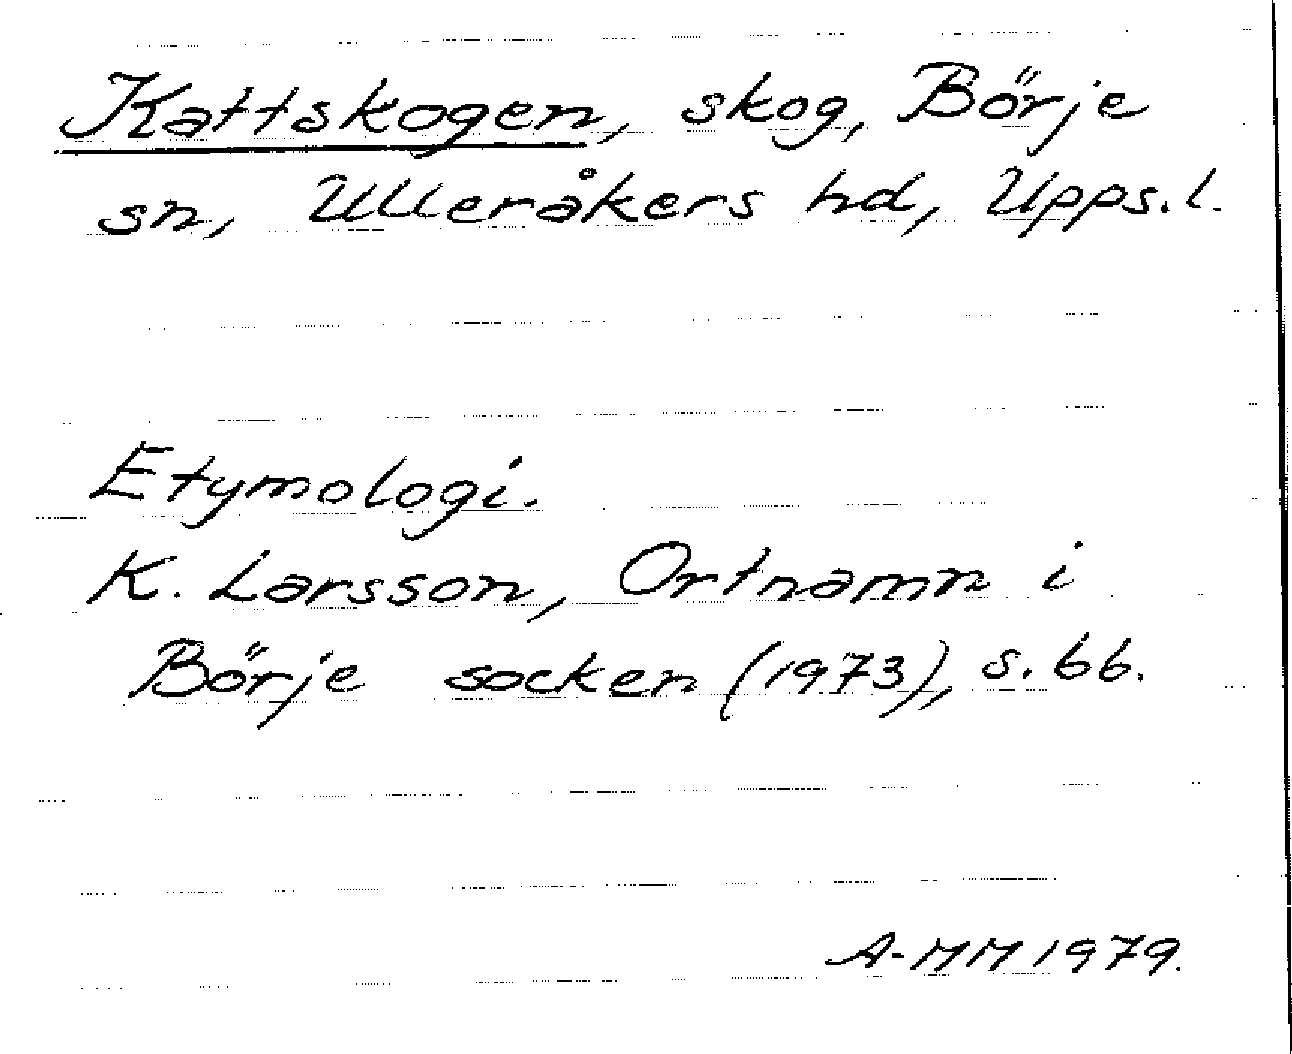 Kattskogen, skog, Börje
sn, Ulleråkers hd, Upps.l.
Etymologi.
K. Larsson, Ortnamn i
Börje socken (1973), s. 66.
A-MM 1979.